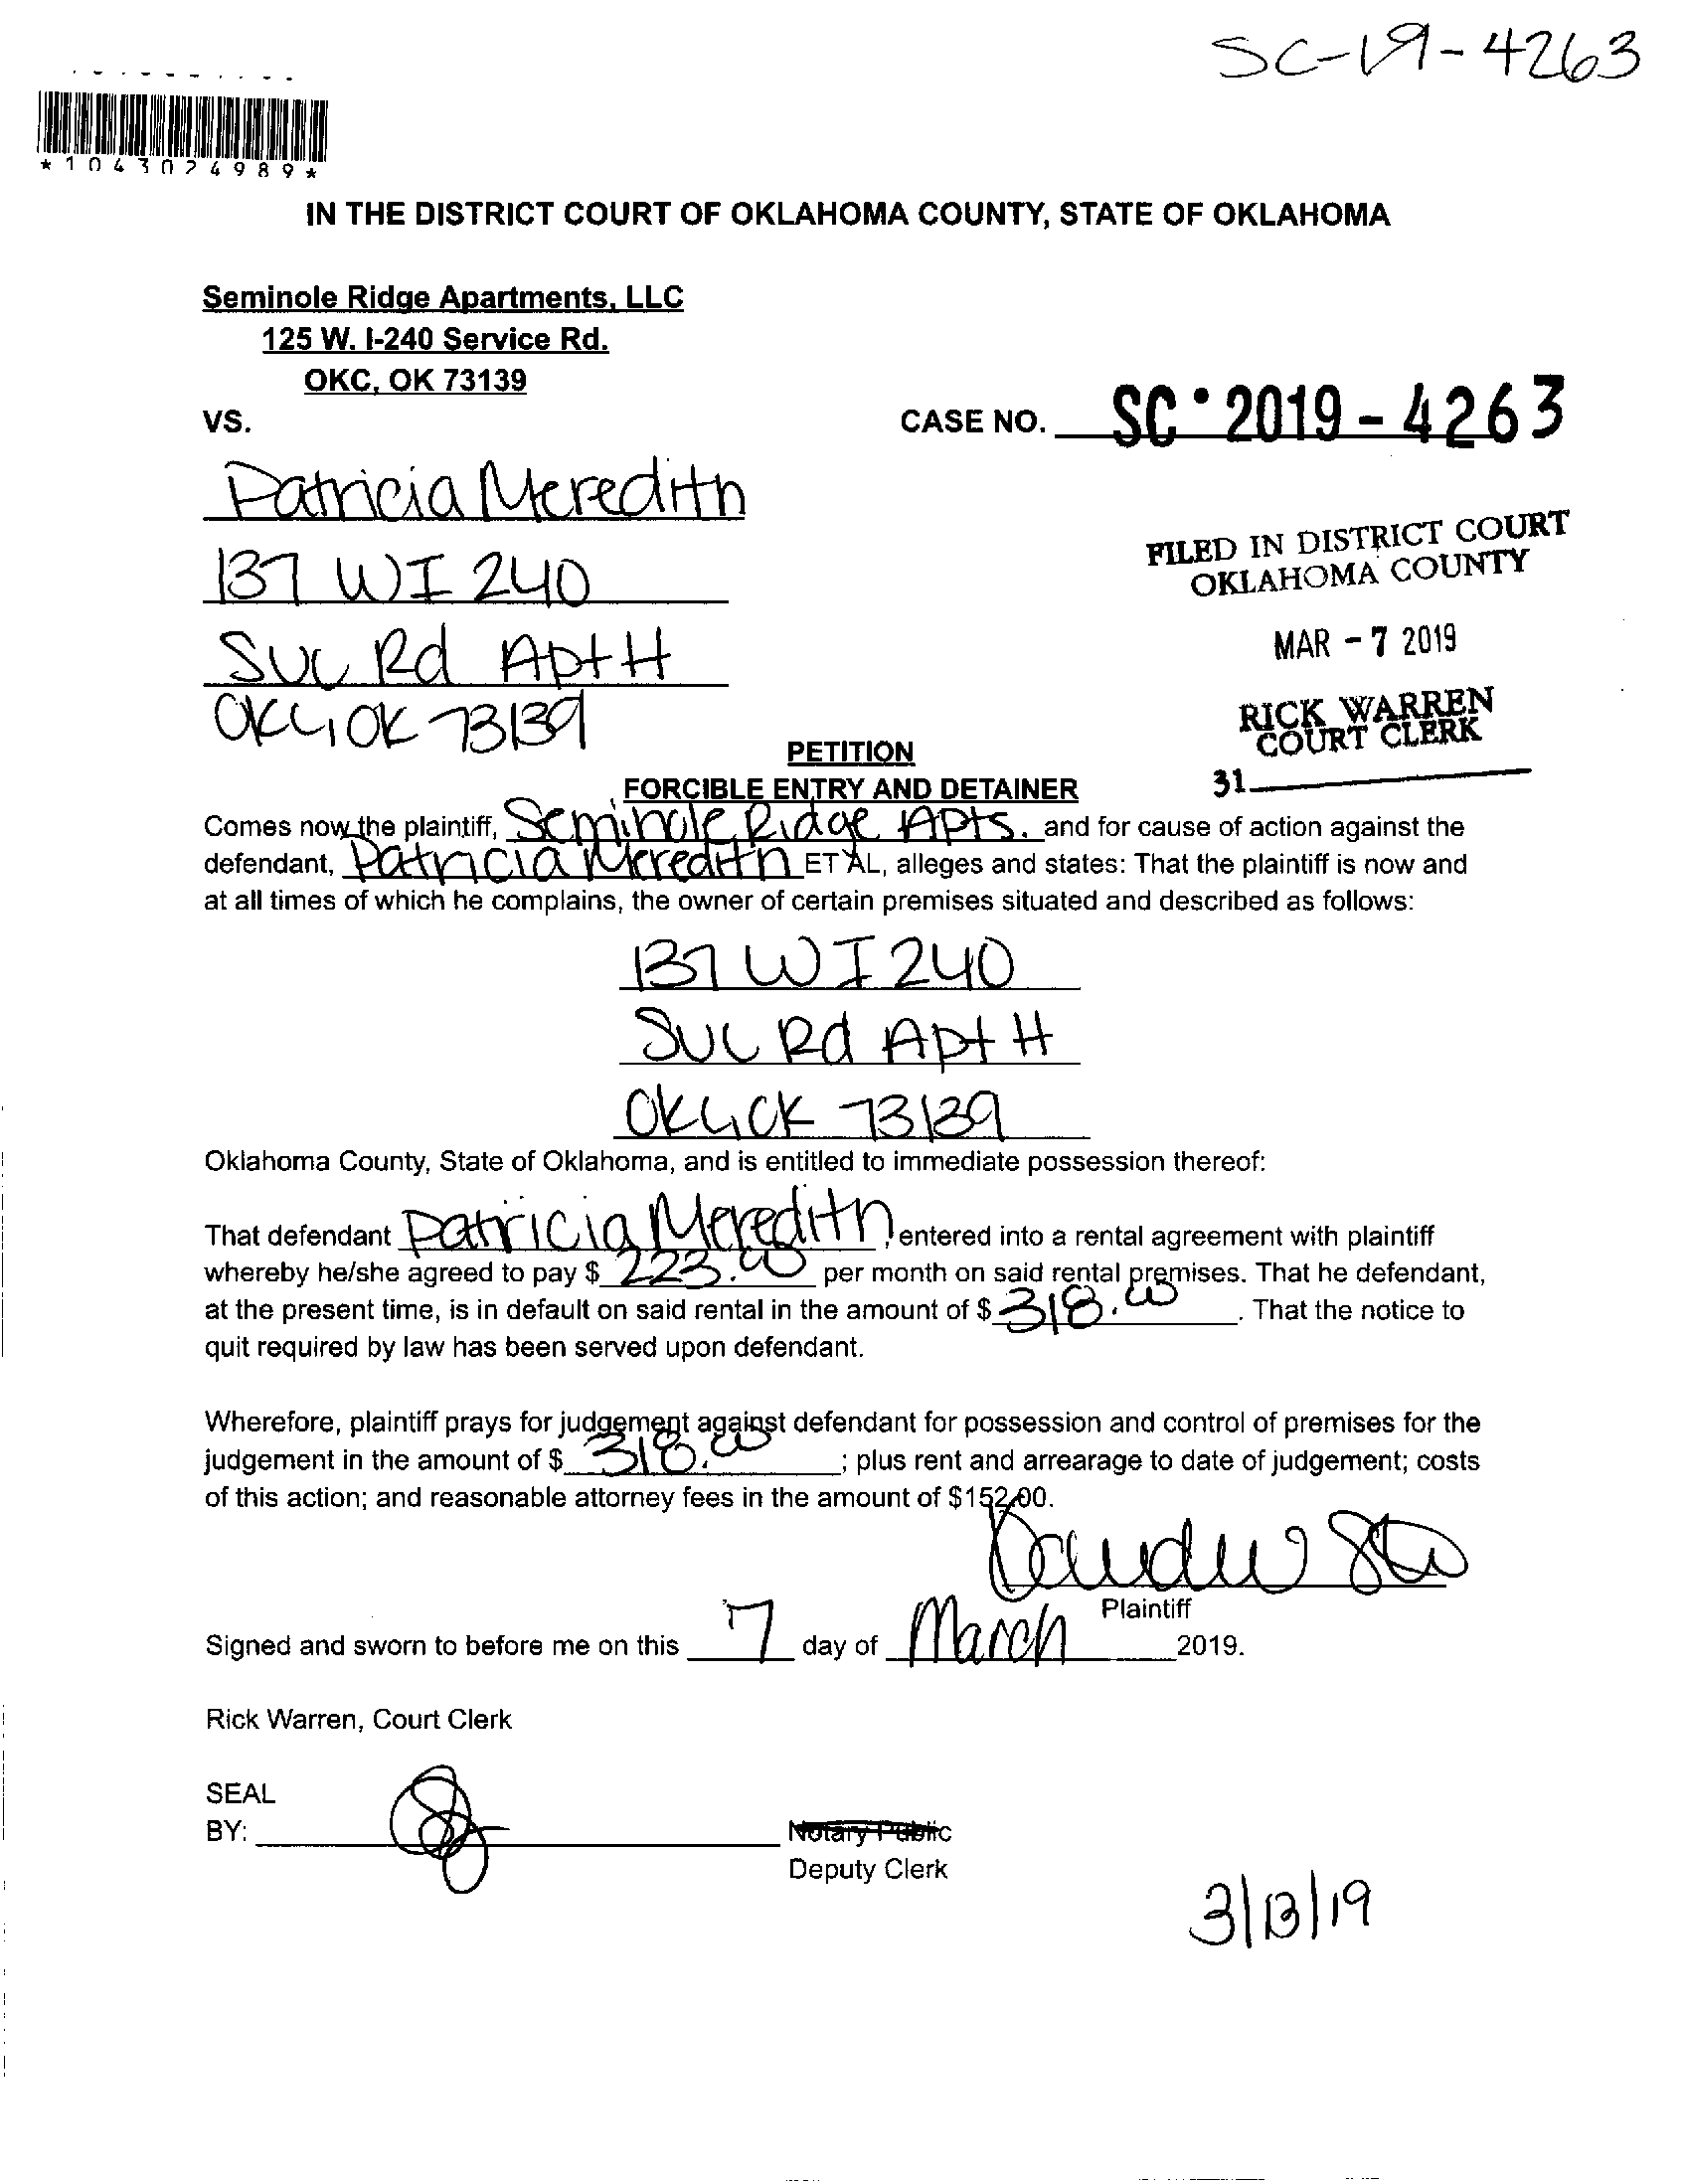 SC-19-4263
*1043024989*
IN THE DISTRICT COURT OF OKLAHOMA COUNTY, STATE OF OKLAHOMA
Seminole Ridge Apartments, LLC
125 W. I-240 Service Rd.
OKC, OK 73139
VS.
CASE NO. SC 2019-4263
Patricia Meredith
137 W I 240
Svc Rd Apt H
OKC, OK 73139
FILED IN DISTRICT COURT
OKLAHOMA COUNTY
MAR - 7 2019
RICK WARREN
COURT CLERK
31
PETITION
FORCIBLE ENTRY AND DETAINER
Comes now the plaintiff, Seminole Ridge Apts. and for cause of action against the
defendant, Patricia Meredith ET AL, alleges and states: That the plaintiff is now and
at all times of which he complains, the owner of certain premises situated and described as follows:
137 W I 240
Svc Rd Apt H
OKC, OK 73139
Oklahoma County, State of Oklahoma, and is entitled to immediate possession thereof:
That defendant Patricia Meredith, entered into a rental agreement with plaintiff
whereby he/she agreed to pay $ 223.00 per month on said rental premises. That he defendant,
at the present time, is in default on said rental in the amount of $ 318.00. That the notice to
quit required by law has been served upon defendant.
Wherefore, plaintiff prays for judgement against defendant for possession and control of premises for the
judgement in the amount of $ 318.00; plus rent and arrearage to date of judgement; costs
of this action; and reasonable attorney fees in the amount of $152.00.
Plaintiff
Signed and sworn to before me on this 7 day of March 2019.
Rick Warren, Court Clerk
SEAL
BY:
Notary Public
Deputy Clerk
3/13/19